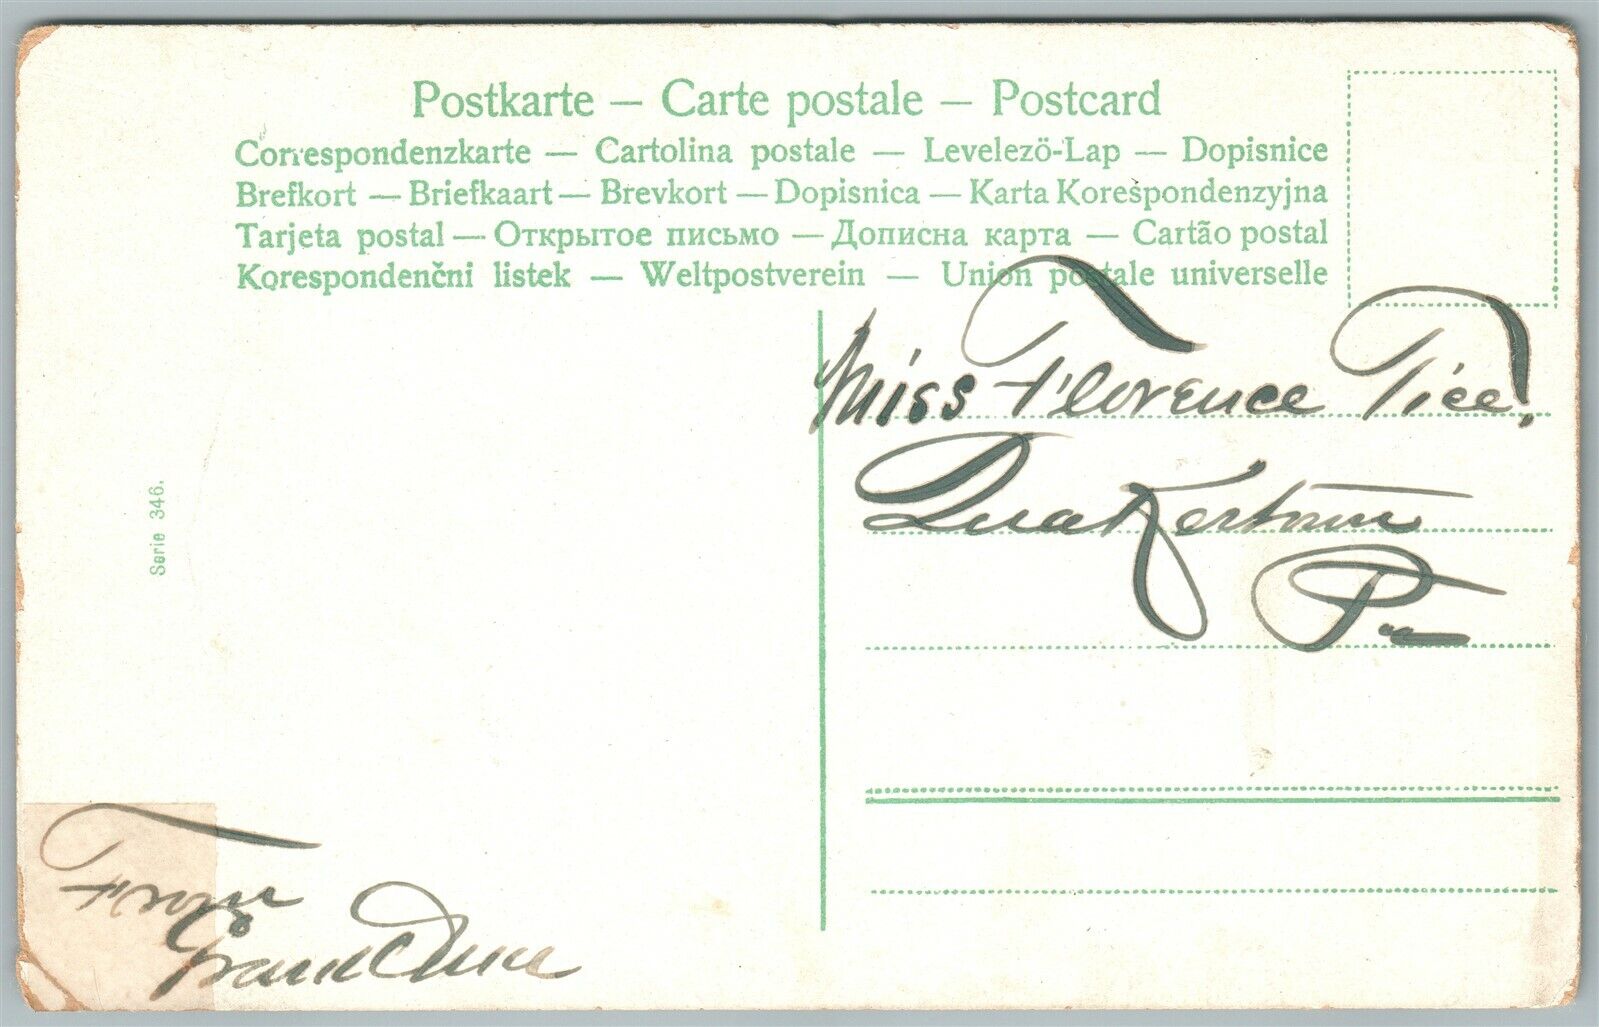 Postkarte — Carte postale — Postcard
Correspondenzkarte — Cartolina postale — Levelezö-Lap — Dopisnice
Brefkort — Briefkaart — Brevkort — Dopisnica — Karta Korespondenzyjna
Tarjeta postal — Открытое письмо — Дописна карта — Cartão postal
Korespondenčni listek — Weltpostverein — Union postale universelle
Miss Florence Tice.
Quakertown
Pa
Serie 346.
From
Grand